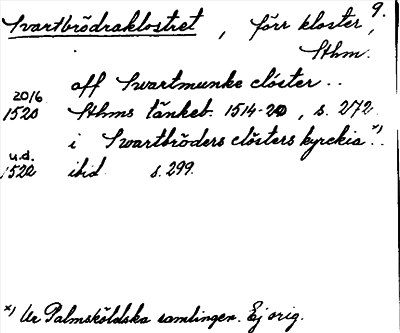 9.
Svartbrödraklostret, förr kloster,
Sthm.
aff Swartmunke clöster..
20/6
1520 Sthms tänkeb. 1514-20, s. 272.
i Swartbröders clösters kyrckia x)..
u.d.
1522 ibid s. 299.
x) Ur Palmsköldska samlingen. Ej orig.